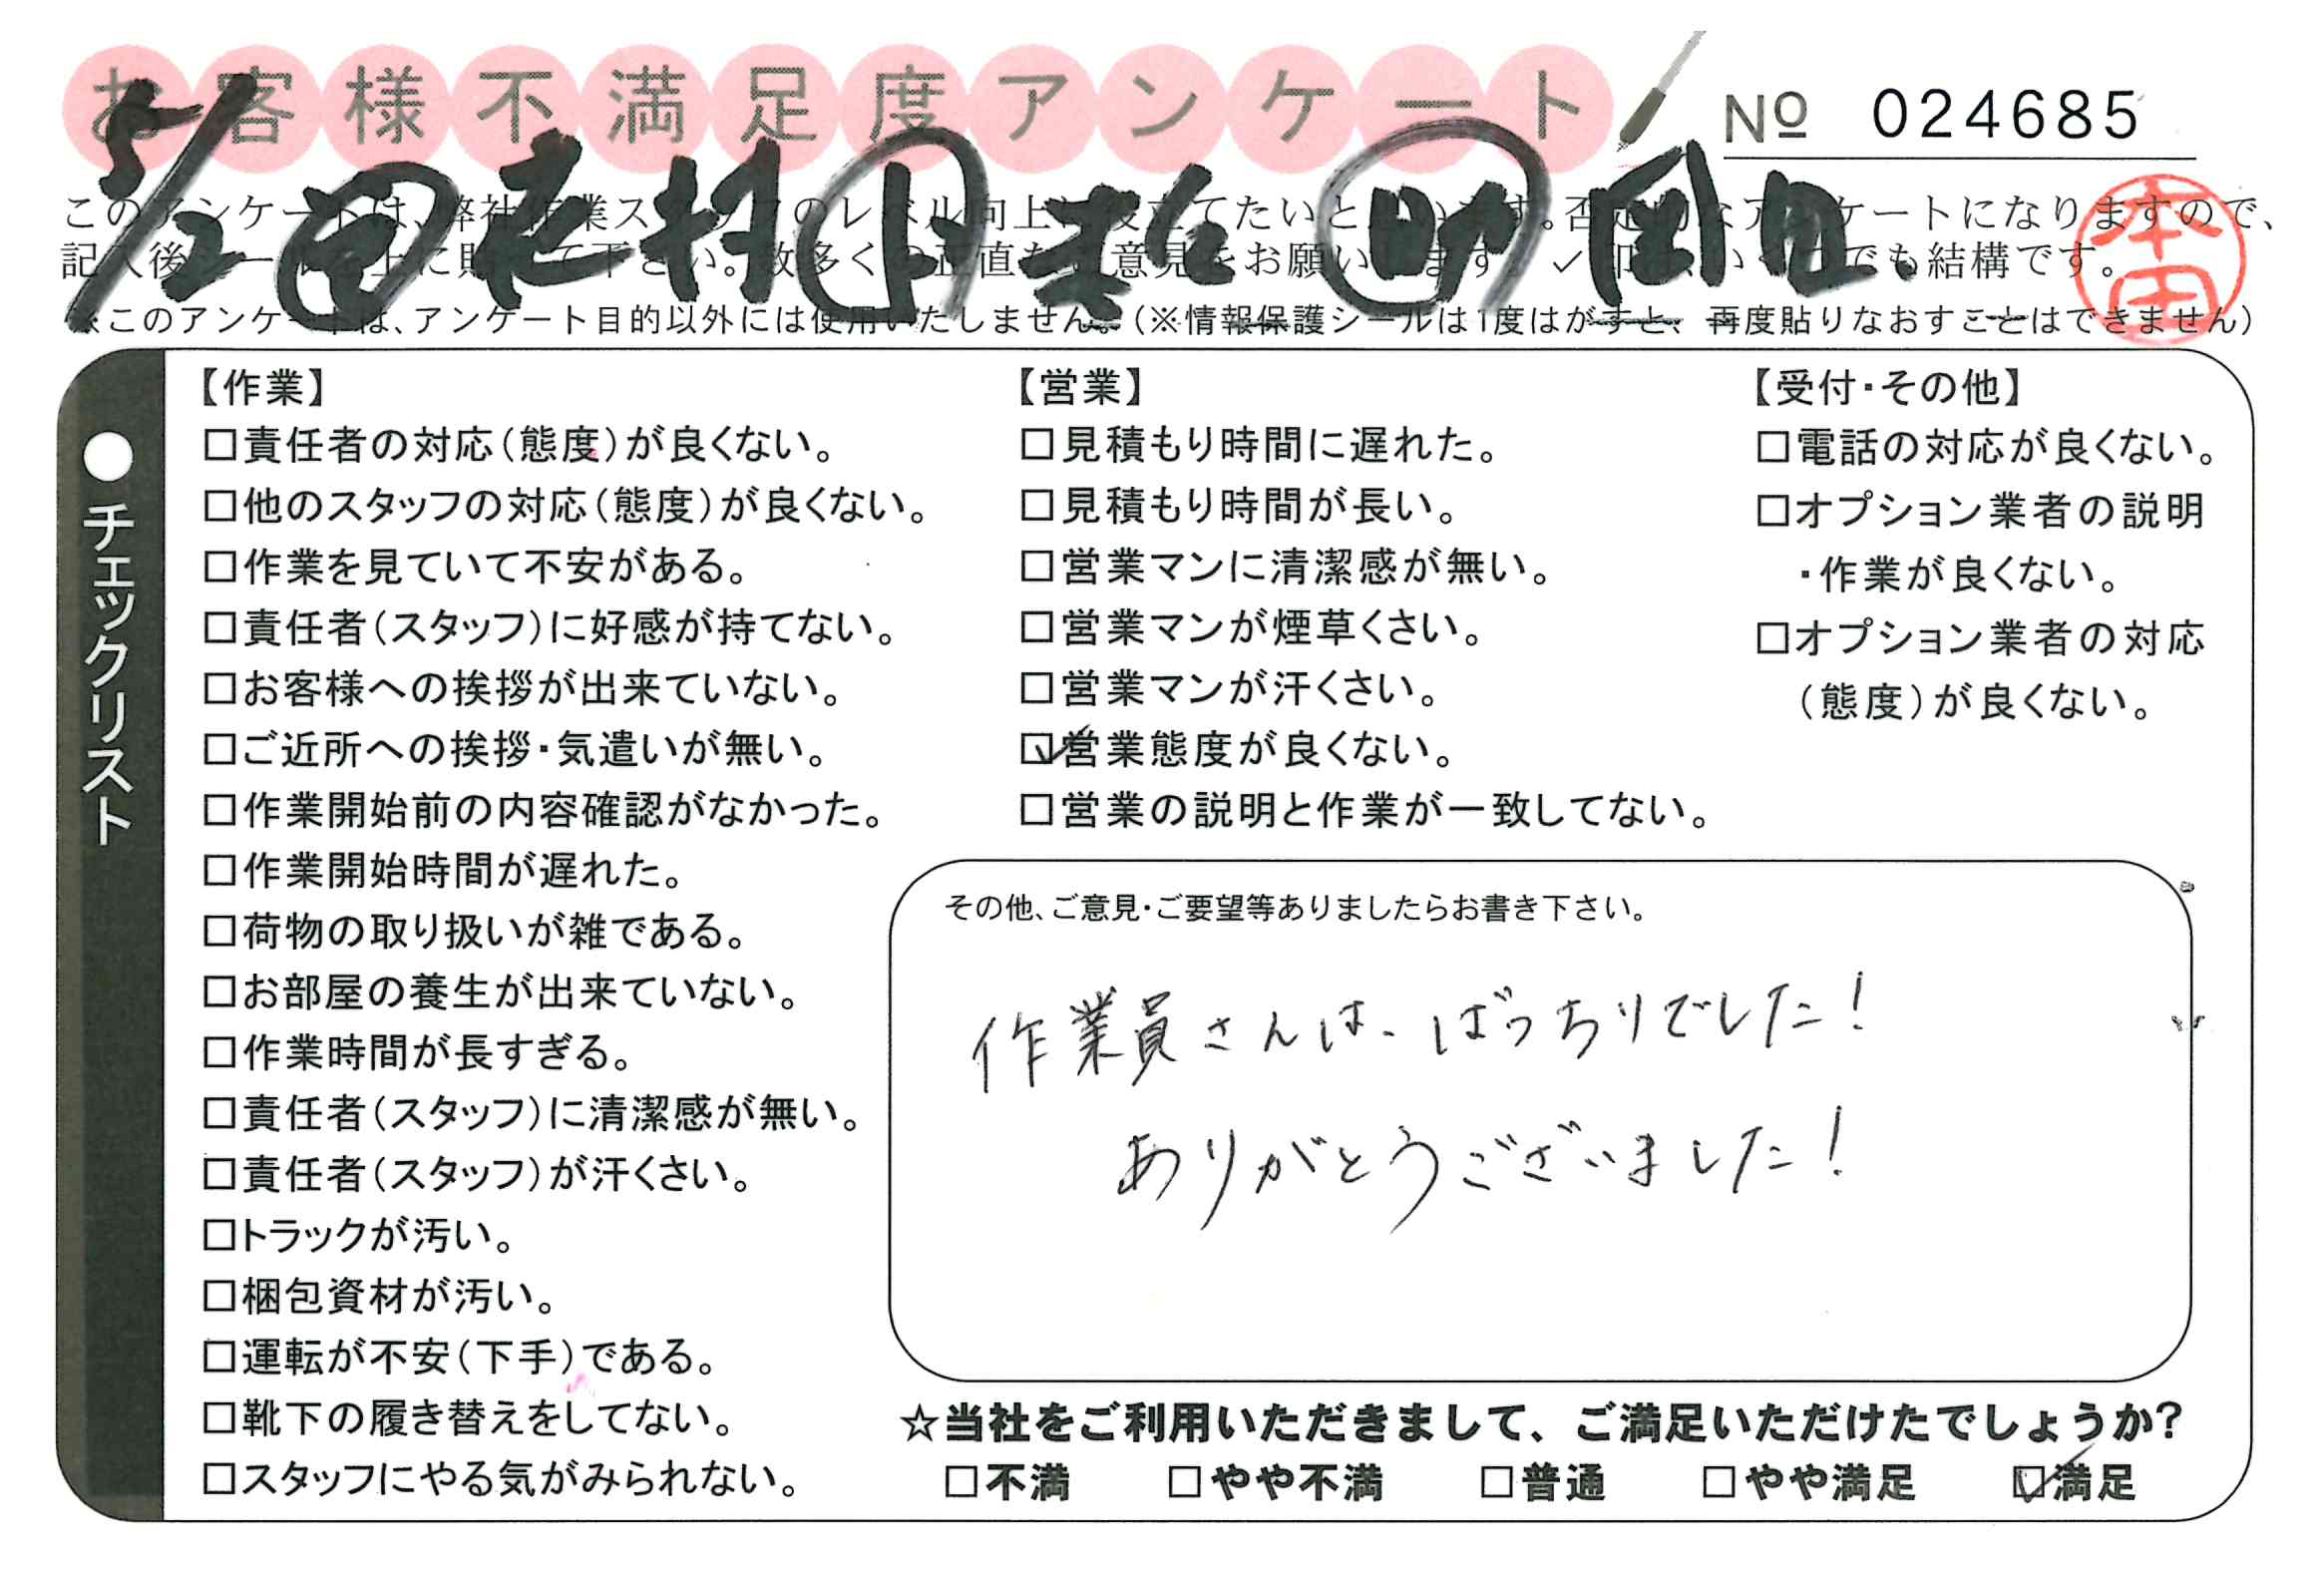 お客様不満足度アンケート
№ 024685
5/2
本田
※このアンケートは、アンケート目的以外には使用いたしません。(※情報保護シールは1度はがすと、再度貼りなおすことはできません)
●チェックリスト
【作業】
□責任者の対応(態度)が良くない。
□他のスタッフの対応(態度)が良くない。
□作業を見ていて不安がある。
□責任者(スタッフ)に好感が持てない。
□お客様への挨拶が出来ていない。
□ご近所への挨拶・気遣いが無い。
□作業開始前の内容確認がなかった。
□作業開始時間が遅れた。
□荷物の取り扱いが雑である。
□お部屋の養生が出来ていない。
□作業時間が長すぎる。
□責任者(スタッフ)に清潔感が無い。
□責任者(スタッフ)が汗くさい。
□トラックが汚い。
□梱包資材が汚い。
□運転が不安(下手)である。
□靴下の履き替えをしてない。
□スタッフにやる気がみられない。
【営業】
□見積もり時間に遅れた。
□見積もり時間が長い。
□営業マンに清潔感が無い。
□営業マンが煙草くさい。
□営業マンが汗くさい。
☑営業態度が良くない。
□営業の説明と作業が一致してない。
【受付・その他】
□電話の対応が良くない。
□オプション業者の説明
・作業が良くない。
□オプション業者の対応
(態度)が良くない。
その他、ご意見・ご要望等ありましたらお書き下さい。
作業員さんは、ばっちりでした!
ありがとうございました!
☆当社をご利用いただきまして、ご満足いただけたでしょうか?
□不満 □やや不満 □普通 □やや満足 ☑満足